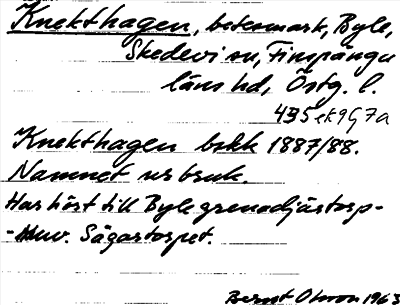 Knekthagen, betesmark, Byle,
Skedevi sn, Finspånga
läns hd, Östg. l.
435 ek 9G 7a
Knekthagen bskk 1887/88.
Namnet ur bruk.
Har hört till Byle grenadjärtorp-
Sågartorpet.
Bernt Olsson 1963